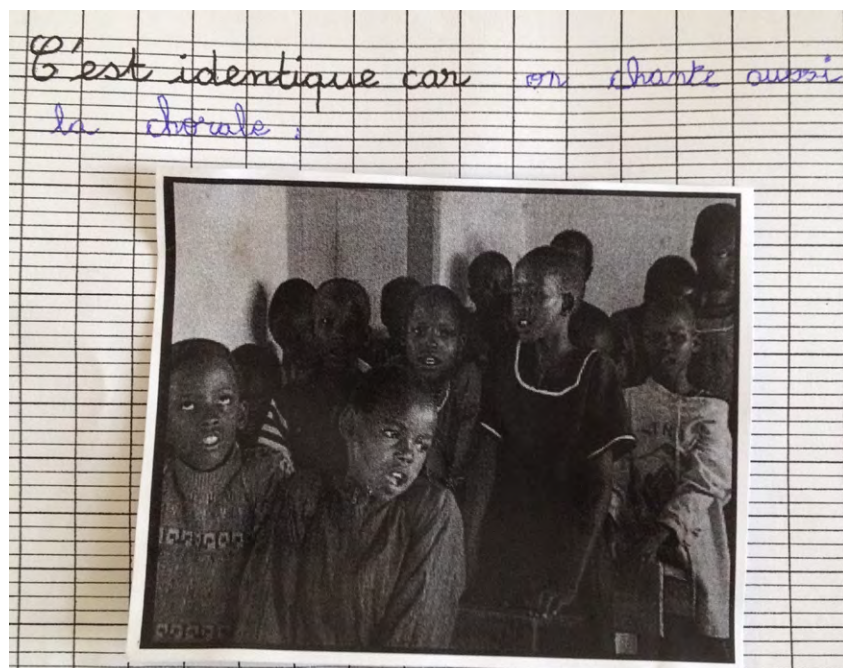 C'est identique car on chante aussi
la chorale.